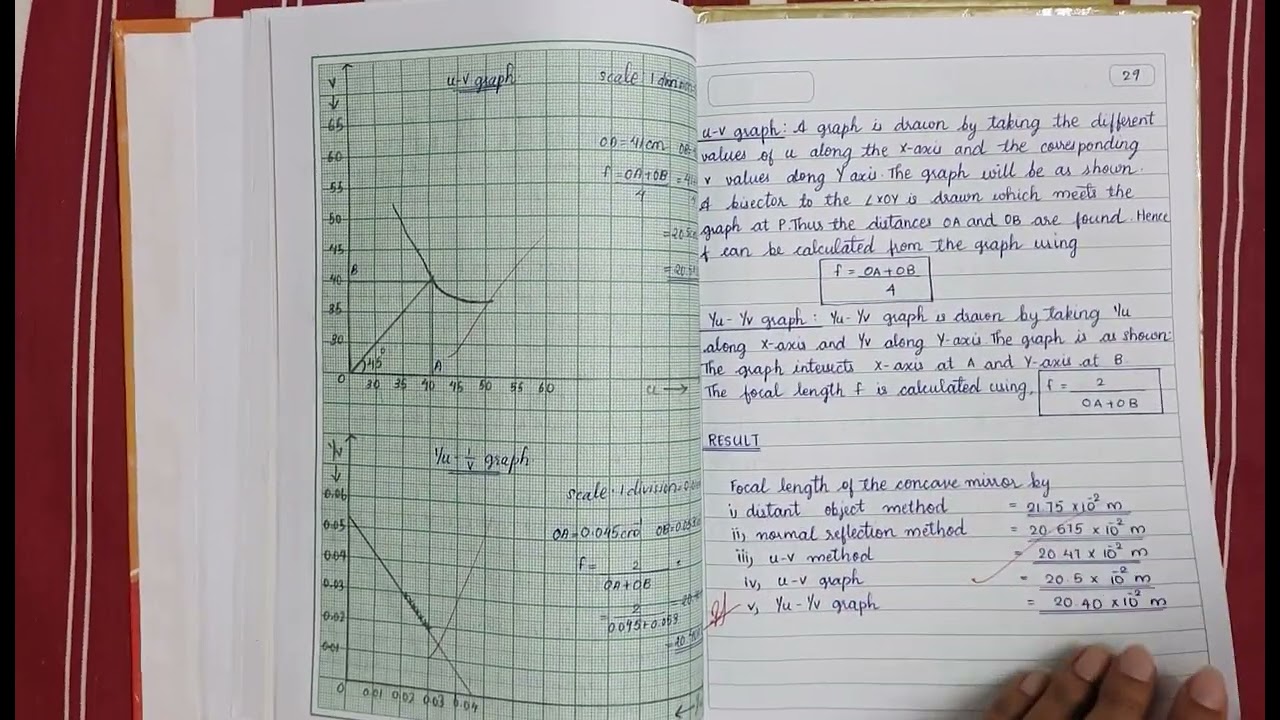 u-v graph
scale 1 divn
V
65
60
55
50
45
B
40
35
30
0
30 35 40 45 50 55 60
45°
A
u →
OA=41cm
f = OA+OB
4
= 20.5
1/u - 1/v graph
scale: 1 division=0.0
0.06
0.05
0.04
0.03
0.02
0.01
0
0.01 0.02 0.03 0.04
OA=0.045cm⁻¹ OB=0.053
f= 2
OA+OB
= 2
0.045+0.053
29
u-v graph: A graph is drawn by taking the different
values of u along the x-axis and the corresponding
v values along Y axis. The graph will be as shown.
A bisector to the ∠XOY is drawn which meets the
graph at P. Thus the distances OA and OB are found. Hence
f can be calculated from the graph using
f = OA+OB
4
1/u - 1/v graph: 1/u - 1/v graph is drawn by taking 1/u
along x-axis and 1/v along Y-axis. The graph is as shown.
The graph intersects x-axis at A and Y-axis at B.
The focal length f is calculated using, f = 2
OA+OB
RESULT
Focal length of the concave mirror by
i, distant object method = 21.75 ×10⁻² m
ii, normal reflection method = 20.675 ×10⁻² m
iii, u-v method = 20.47 ×10⁻² m
iv, u-v graph = 20.5 × 10⁻² m
v, 1/u - 1/v graph = 20.40 ×10⁻² m